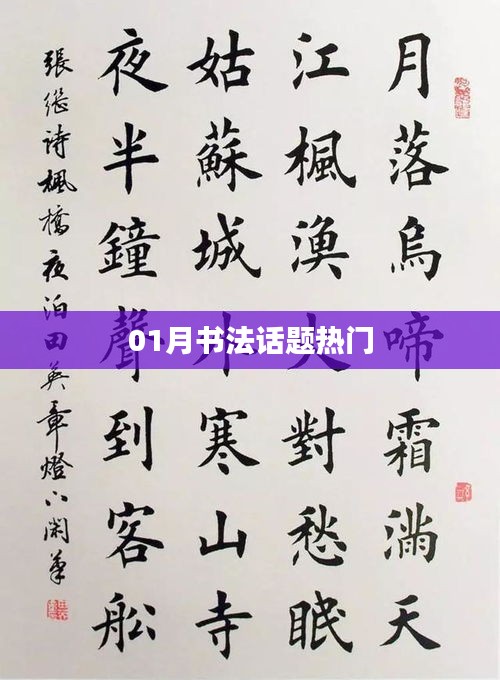 月落烏啼霜滿天
江楓漁火對愁眠
姑蘇城外寒山寺
夜半鐘聲到客船
張继诗楓橋夜泊田英章燈下闲筆
01月书法话题热门